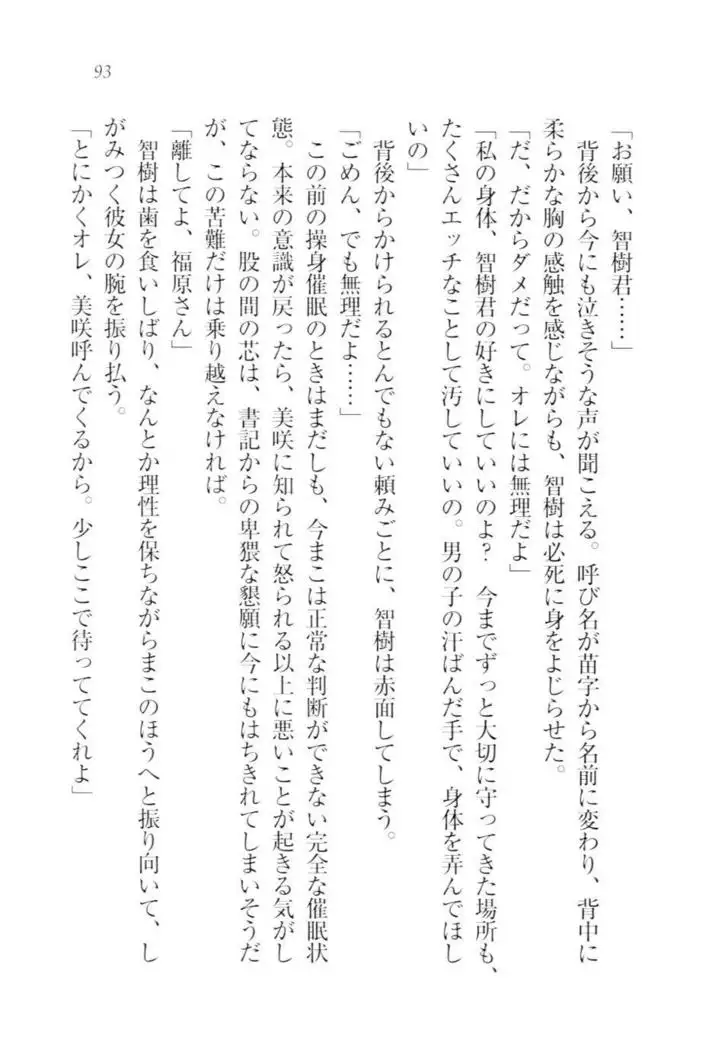 93
「お願い、智樹君……」
背後から今にも泣きそうな声が聞こえる。呼び名が苗字から名前に変わり、背中に
柔らかな胸の感触を感じながらも、智樹は必死に身をよじらせた。
「だ、だからダメだって。オレには無理だよ」
「私の身体、智樹君の好きにしていいのよ? 今までずっと大切に守ってきた場所も、
たくさんエッチなことして汚していいの。男の子の汗ばんだ手で、身体を弄んでほし
いの」
背後からかけられるとんでもない頼みごとに、智樹は赤面してしまう。
「ごめん、でも無理だよ……」
この前の操身催眠のときはまだしも、今まこは正常な判断ができない完全な催眠状
態。本来の意識が戻ったら、美咲に知られて怒られる以上に悪いことが起きる気がし
てならない。股の間の芯は、書記からの卑猥な懇願に今にもはちきれてしまいそうだ
が、この苦難だけは乗り越えなければ。
「離してよ、福原さん」
智樹は歯を食いしばり、なんとか理性を保ちながらまこのほうへと振り向いて、し
がみつく彼女の腕を振り払う。
「とにかくオレ、美咲呼んでくるから。少しここで待っててくれよ」